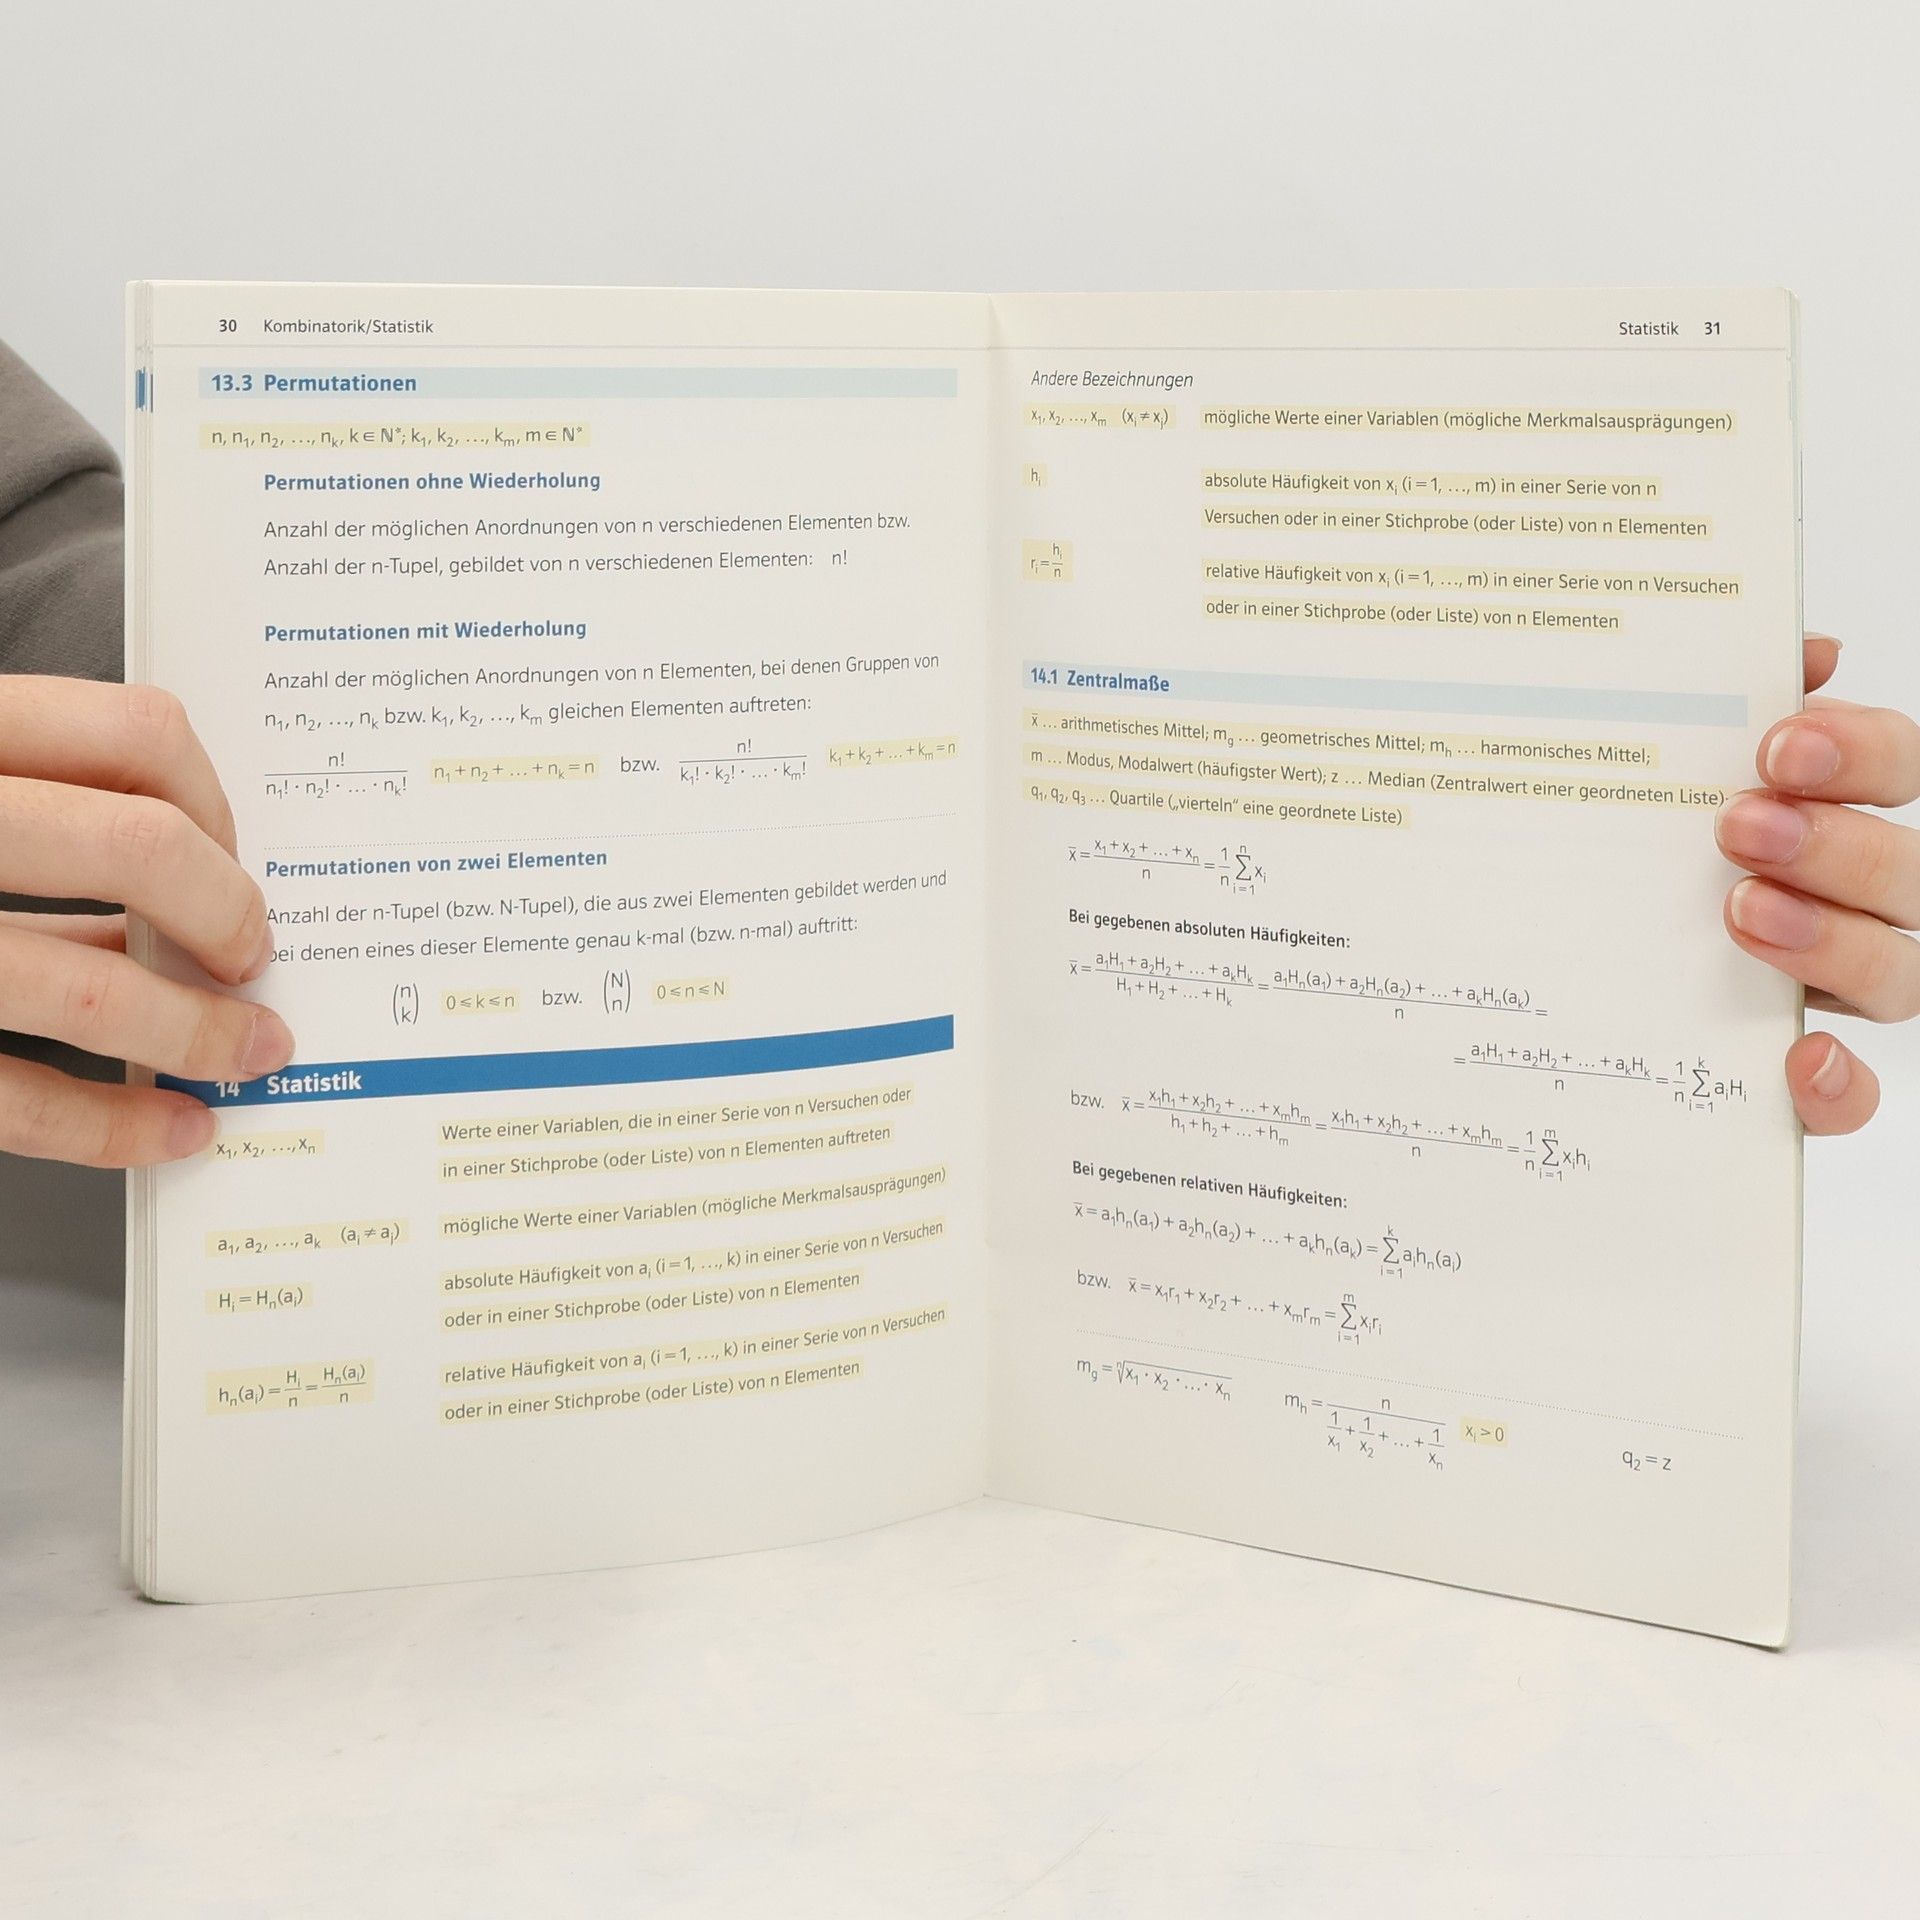 30 Kombinatorik/Statistik
13.3 Permutationen
n, n₁, n₂, …, nₖ, k ∈ ℕ*; k₁, k₂, …, kₘ, m ∈ ℕ*
Permutationen ohne Wiederholung
Anzahl der möglichen Anordnungen von n verschiedenen Elementen bzw.
Anzahl der n-Tupel, gebildet von n verschiedenen Elementen: n!
Permutationen mit Wiederholung
Anzahl der möglichen Anordnungen von n Elementen, bei denen Gruppen von
n₁, n₂, …, nₖ bzw. k₁, k₂, …, kₘ gleichen Elementen auftreten:
n!/(n₁! · n₂! · … · nₖ!) n₁ + n₂ + … + nₖ = n bzw. n!/(k₁! · k₂! · … · kₘ!) k₁ + k₂ + … + kₘ = n
Permutationen von zwei Elementen
Anzahl der n-Tupel (bzw. N-Tupel), die aus zwei Elementen gebildet werden und
bei denen eines dieser Elemente genau k-mal (bzw. n-mal) auftritt:
(n k) 0 ≤ k ≤ n bzw. (N n) 0 ≤ n ≤ N
14 Statistik
x₁, x₂, …, xₙ Werte einer Variablen, die in einer Serie von n Versuchen oder
in einer Stichprobe (oder Liste) von n Elementen auftreten
a₁, a₂, …, aₖ (aᵢ ≠ aⱼ) mögliche Werte einer Variablen (mögliche Merkmalsausprägungen)
Hᵢ = Hₙ(aᵢ) absolute Häufigkeit von aᵢ (i = 1, …, k) in einer Serie von n Versuchen
oder in einer Stichprobe (oder Liste) von n Elementen
hₙ(aᵢ) = Hᵢ/n = Hₙ(aᵢ)/n relative Häufigkeit von aᵢ (i = 1, …, k) in einer Serie von n Versuchen
oder in einer Stichprobe (oder Liste) von n Elementen
Statistik 31
Andere Bezeichnungen
x₁, x₂, …, xₘ (xᵢ ≠ xⱼ) mögliche Werte einer Variablen (mögliche Merkmalsausprägungen)
hᵢ absolute Häufigkeit von xᵢ (i = 1, …, m) in einer Serie von n
Versuchen oder in einer Stichprobe (oder Liste) von n Elementen
rᵢ = hᵢ/n relative Häufigkeit von xᵢ (i = 1, …, m) in einer Serie von n Versuchen
oder in einer Stichprobe (oder Liste) von n Elementen
14.1 Zentralmaße
x̄ … arithmetisches Mittel; m_g … geometrisches Mittel; mₕ … harmonisches Mittel;
m … Modus, Modalwert (häufigster Wert); z … Median (Zentralwert einer geordneten Liste)
q₁, q₂, q₃ … Quartile („vierteln“ eine geordnete Liste)
x̄ = (x₁ + x₂ + … + xₙ)/n = 1/n ∑ᵢ₌₁ⁿ xᵢ
Bei gegebenen absoluten Häufigkeiten:
x̄ = (a₁H₁ + a₂H₂ + … + aₖHₖ)/(H₁ + H₂ + … + Hₖ) = (a₁Hₙ(a₁) + a₂Hₙ(a₂) + … + aₖHₙ(aₖ))/n =
= (a₁H₁ + a₂H₂ + … + aₖHₖ)/n = 1/n ∑ᵢ₌₁ᵏ aᵢHᵢ
bzw. x̄ = (x₁h₁ + x₂h₂ + … + xₘhₘ)/(h₁ + h₂ + … + hₘ) = (x₁h₁ + x₂h₂ + … + xₘhₘ)/n = 1/n ∑ᵢ₌₁ᵐ xᵢhᵢ
Bei gegebenen relativen Häufigkeiten:
x̄ = a₁hₙ(a₁) + a₂hₙ(a₂) + … + aₖhₙ(aₖ) = ∑ᵢ₌₁ᵏ aᵢhₙ(aᵢ)
bzw. x̄ = x₁r₁ + x₂r₂ + … + xₘrₘ = ∑ᵢ₌₁ᵐ xᵢrᵢ
m_g = ⁿ√(x₁ · x₂ · … · xₙ) mₕ = n/(1/x₁ + 1/x₂ + … + 1/xₙ) xᵢ > 0 q₂ = z